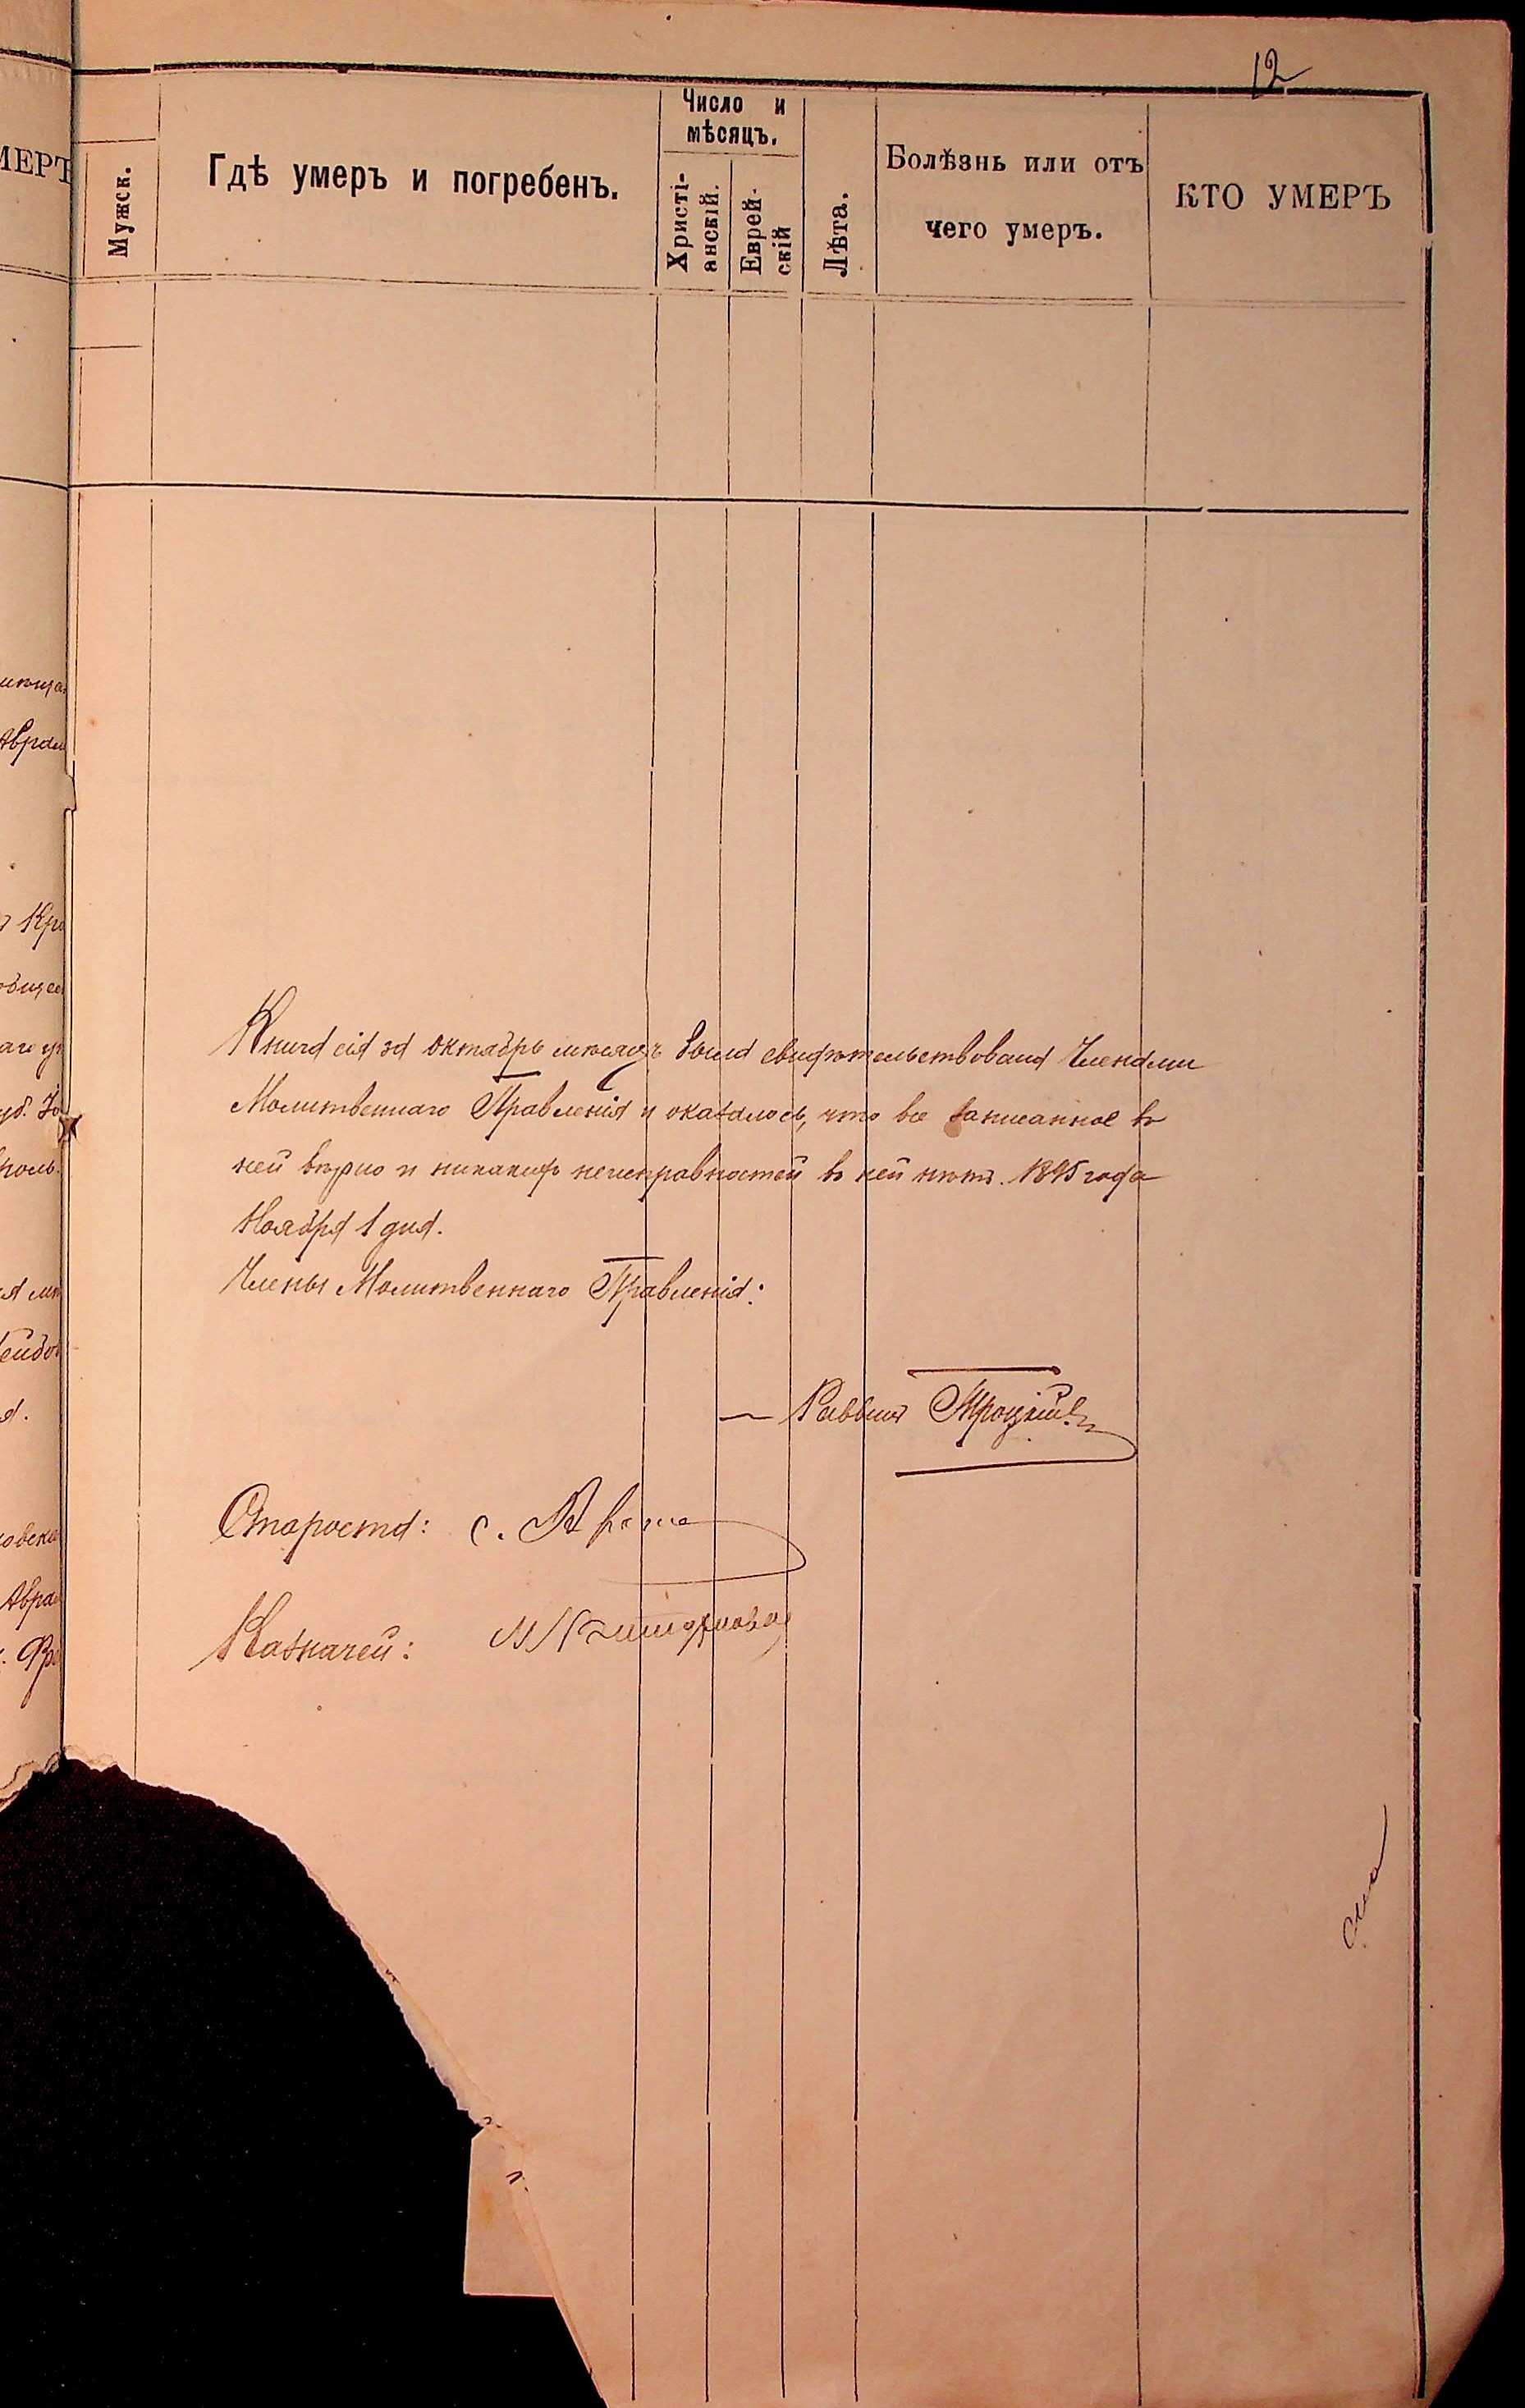 12
Мужск.
Гдѣ умеръ и погребенъ.
Число и
мѣсяцъ.
Христі-
анскій.
Еврей-
скій
Лѣта.
Болѣзнь или отъ
чего умеръ.
КТО УМЕРЪ
Книга сія за Октябрь мѣсяцъ была свидѣтельствована Членами
Молитвеннаго Правленія и оказалось, что все записанное въ
ней вѣрно и никакихъ неисправностей въ ней нѣтъ. 1895 года
Ноября 1 дня.
Члены Молитвеннаго Правленія:
Раввинъ Троцкій
Староста: С.
Казначей: